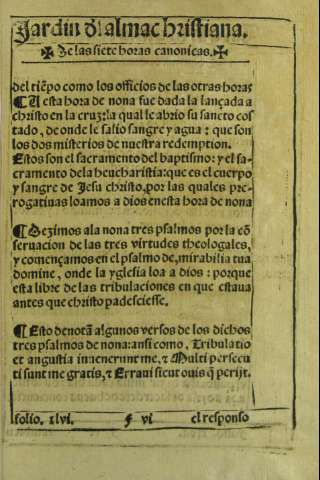 Jardin d'l alma christiana.
✠ De las siete horas canonicas. ✠
del tiẽpo como los officios de las otras horas
¶ A esta hora de nona fue dada la lançada a
christo en la cruz: la qual le abrio su sancto cos
tado, de onde le salio sangre y agua: que son
los dos misterios de nuestra redemption.
Estos son el sacramento del baptismo: y el sa-
cramento dela heucharistia: que es el cuerpo
y sangre de Jesu christo, por las quales pre-
rogatiuas loamos a dios enesta hora de nona
¶ Dezimos ala nona tres psalmos por la cõ
seruacion de las tres virtudes theologales,
y començamos en el psalmo de, mirabilia tua
domine, onde la yglesia loa a dios: porque
esta libre de las tribulaciones en que estaua
antes que christo padesciesse.
¶ Esto denotã algunos versos de los dichos
tres psalmos de nona: ansi como, Tribulatio
et angustia inuenerunt me, ⁊ Multi persecu
ti sunt me gratis, ⁊ Erraui sicut ouis q̃ perijt.
folio. xlvi. f vi el responso